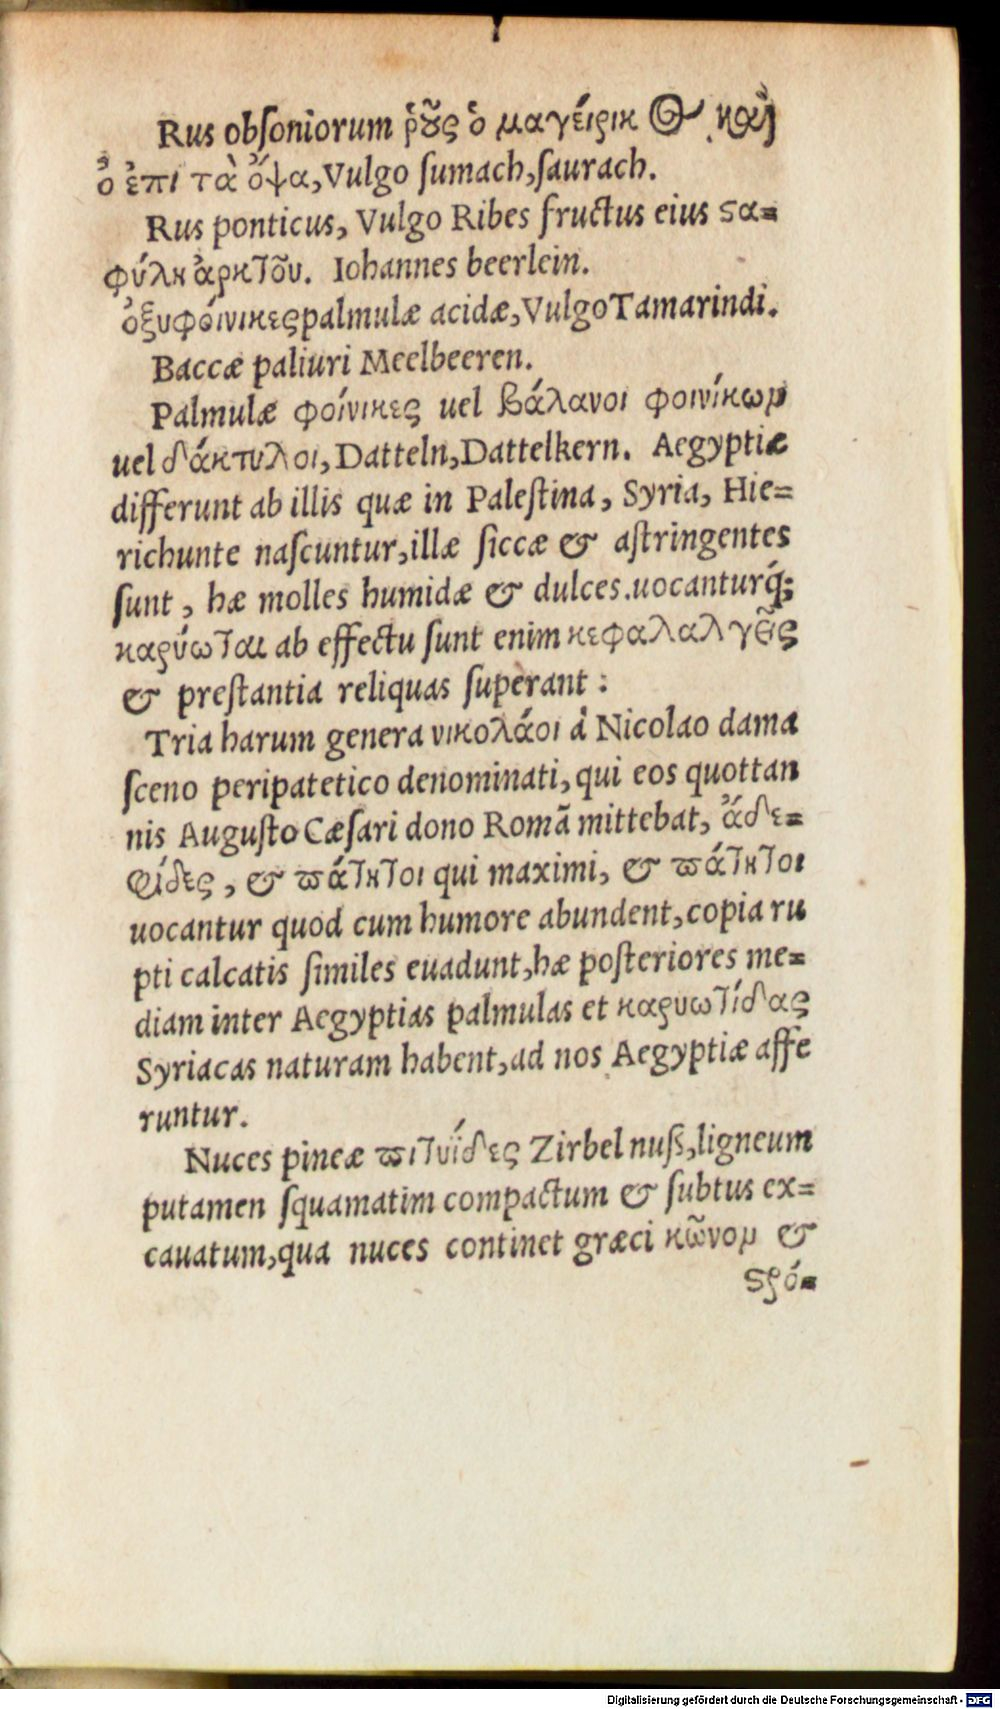 Rus obſoniorum ῥοῦς ὁ μαγειρικὸς καὶ
ὁ ἐπὶ τὰ ὄψα, Vulgo ſumach, ſaurach.
Rus ponticus, Vulgo Ribes fructus eius ϛα=
φύλη ἀρκτοῦ. Iohannes beerlein.
ὀξυφοίνικες palmulæ acidæ, Vulgo Tamarindi.
Baccæ paliuri Meelbeeren.
Palmulæ φοίνικες uel βάλανοι φοινίκωμ
uel δάκτυλοι, Datteln, Dattelkern. Aegyptiæ
differunt ab illis quæ in Paleſtina, Syria, Hie=
richunte naſcuntur, illæ ſiccæ & aſtringentes
ſunt, hæ molles humidæ & dulces. uocanturq́;
καρύωται ab effectu ſunt enim κεφαλαλγεῖς
& preſtantia reliquas ſuperant:
Tria harum genera νικολάοι à Nicolao dama
ſceno peripatetico denominati, qui eos quottan
nis Auguſto Cæſari dono Romã mittebat, ἀδε=
φίδες, & πάτητοι qui maximi, & πάτητοι
uocantur quod cum humore abundent, copia ru
pti calcatis ſimiles euadunt, hæ poſteriores me=
diam inter Aegyptias palmulas et καρυωτίδας
Syriacas naturam habent, ad nos Aegyptiæ affe
runtur.
Nuces pineæ πιτυΐδες Zirbel nuß, ligneum
putamen ſquamatim compactum & ſubtus ex=
cauatum, qua nuces continet græci κῶνομ &
ϛρό=
Digitalisierung gefördert durch die Deutsche Forschungsgemeinschaft - DFG